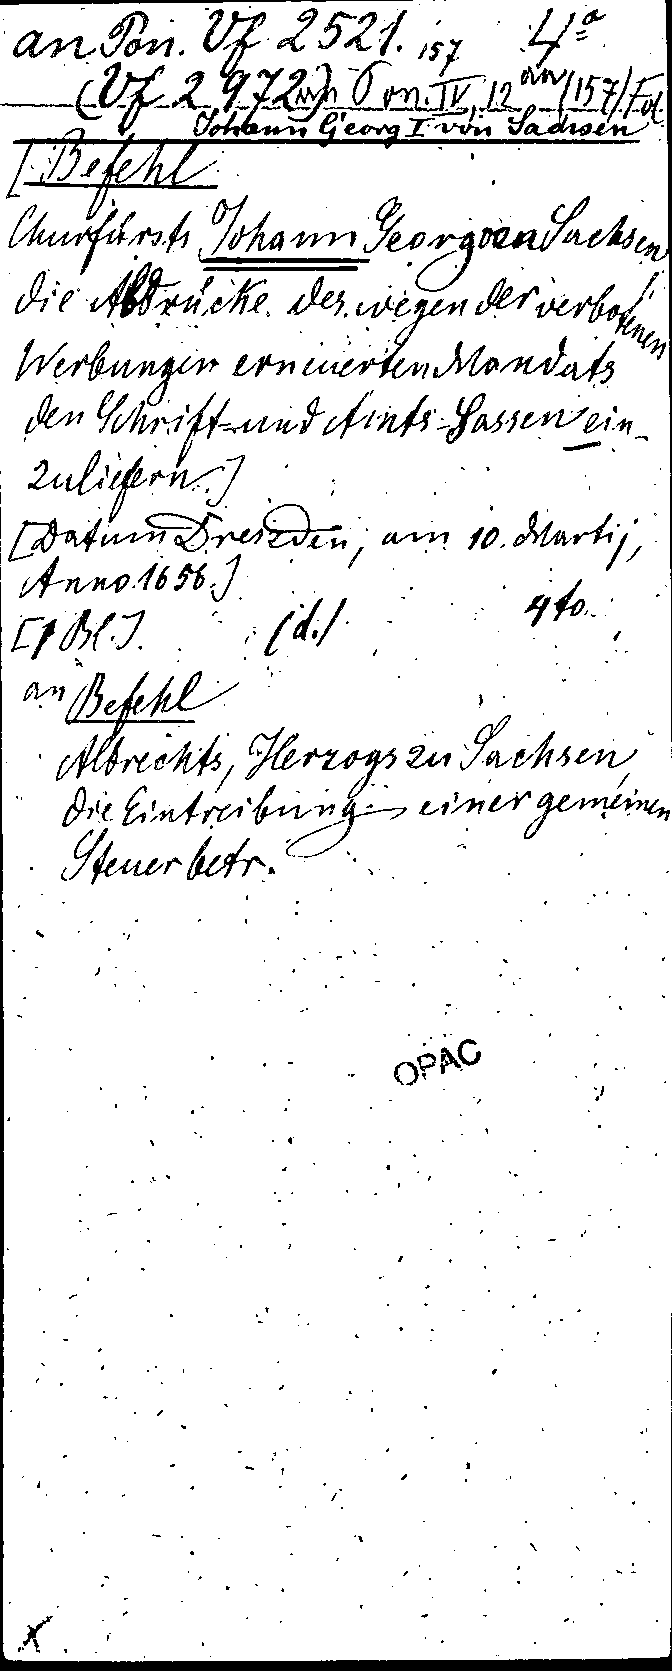 an Pon. Vf 2521. 157 4º
(Vf 2972) an Pon. IV, 12 an (157) Fol
Johann Georg I von Sachsen
[Befehl
Churfürsts Johann Georg von Sachsen,
die Abdrücke des wegen der verbotenen
Werbungen erneuerten Mandats
den Schrift- und Amts-Sassen ein-
zuliefern.]
[Datum Dreszden, am 10. Martij,
Anno 1656.]
[1 Bl.]. (d.) 4to.
an Befehl
Albrechts, Herzogs zu Sachsen,
die Eintreibung einer gemeinen
Steuer betr.
OPAC
x